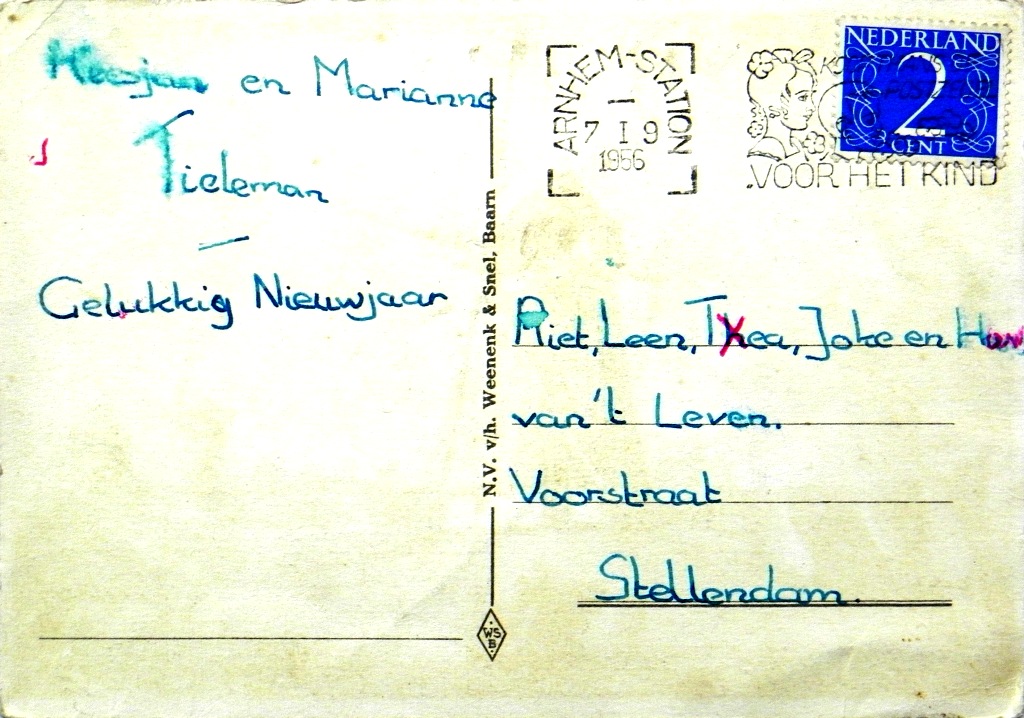 en Marianne
Tieleman
Gelukkig Nieuwjaar
N.V. v/h. Weenenk & Snel, Baarn
WS
B
ARNHEM-STATION
7 I 9
1956
VOOR HET KIND
NEDERLAND
2
CENT
Riet, Leen, Thea, Joke en
van 't Leven.
Voorstraat
Stellendam.